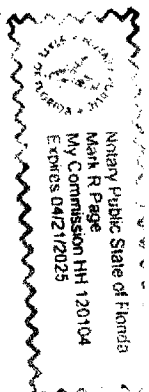 Notary Public State of Florida
Mark R Page
My Commission HH 120104
Expires 04/21/2025